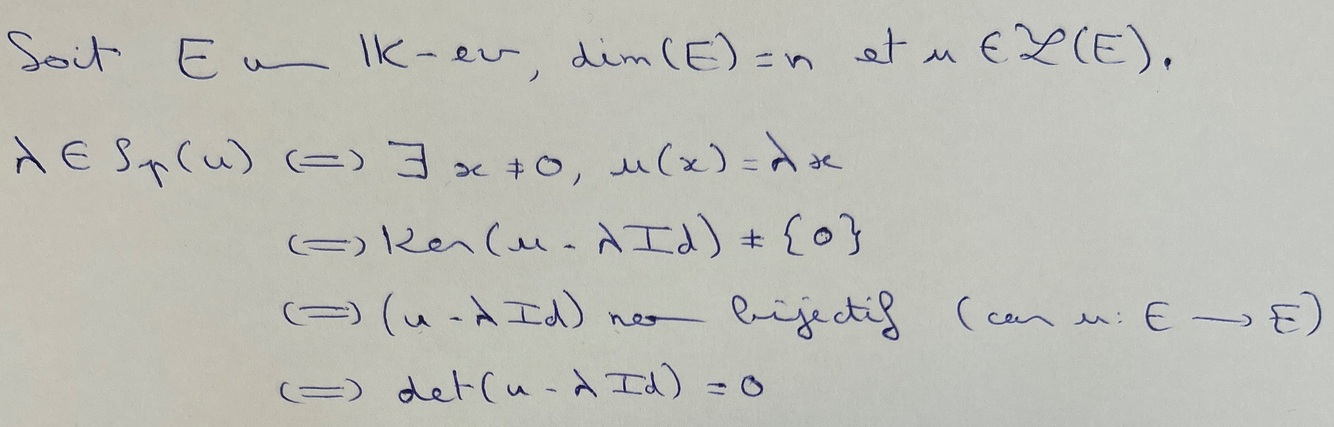 Soit E un IK-ev, dim(E)=n et u ∈ ℒ(E).
λ ∈ Sp(u) <=> ∃ x ≠ 0, u(x) = λx
<=> Ker(u - λId) ≠ {0}
<=> (u - λId) non bijectif (car u: E → E)
<=> det(u - λId) = 0